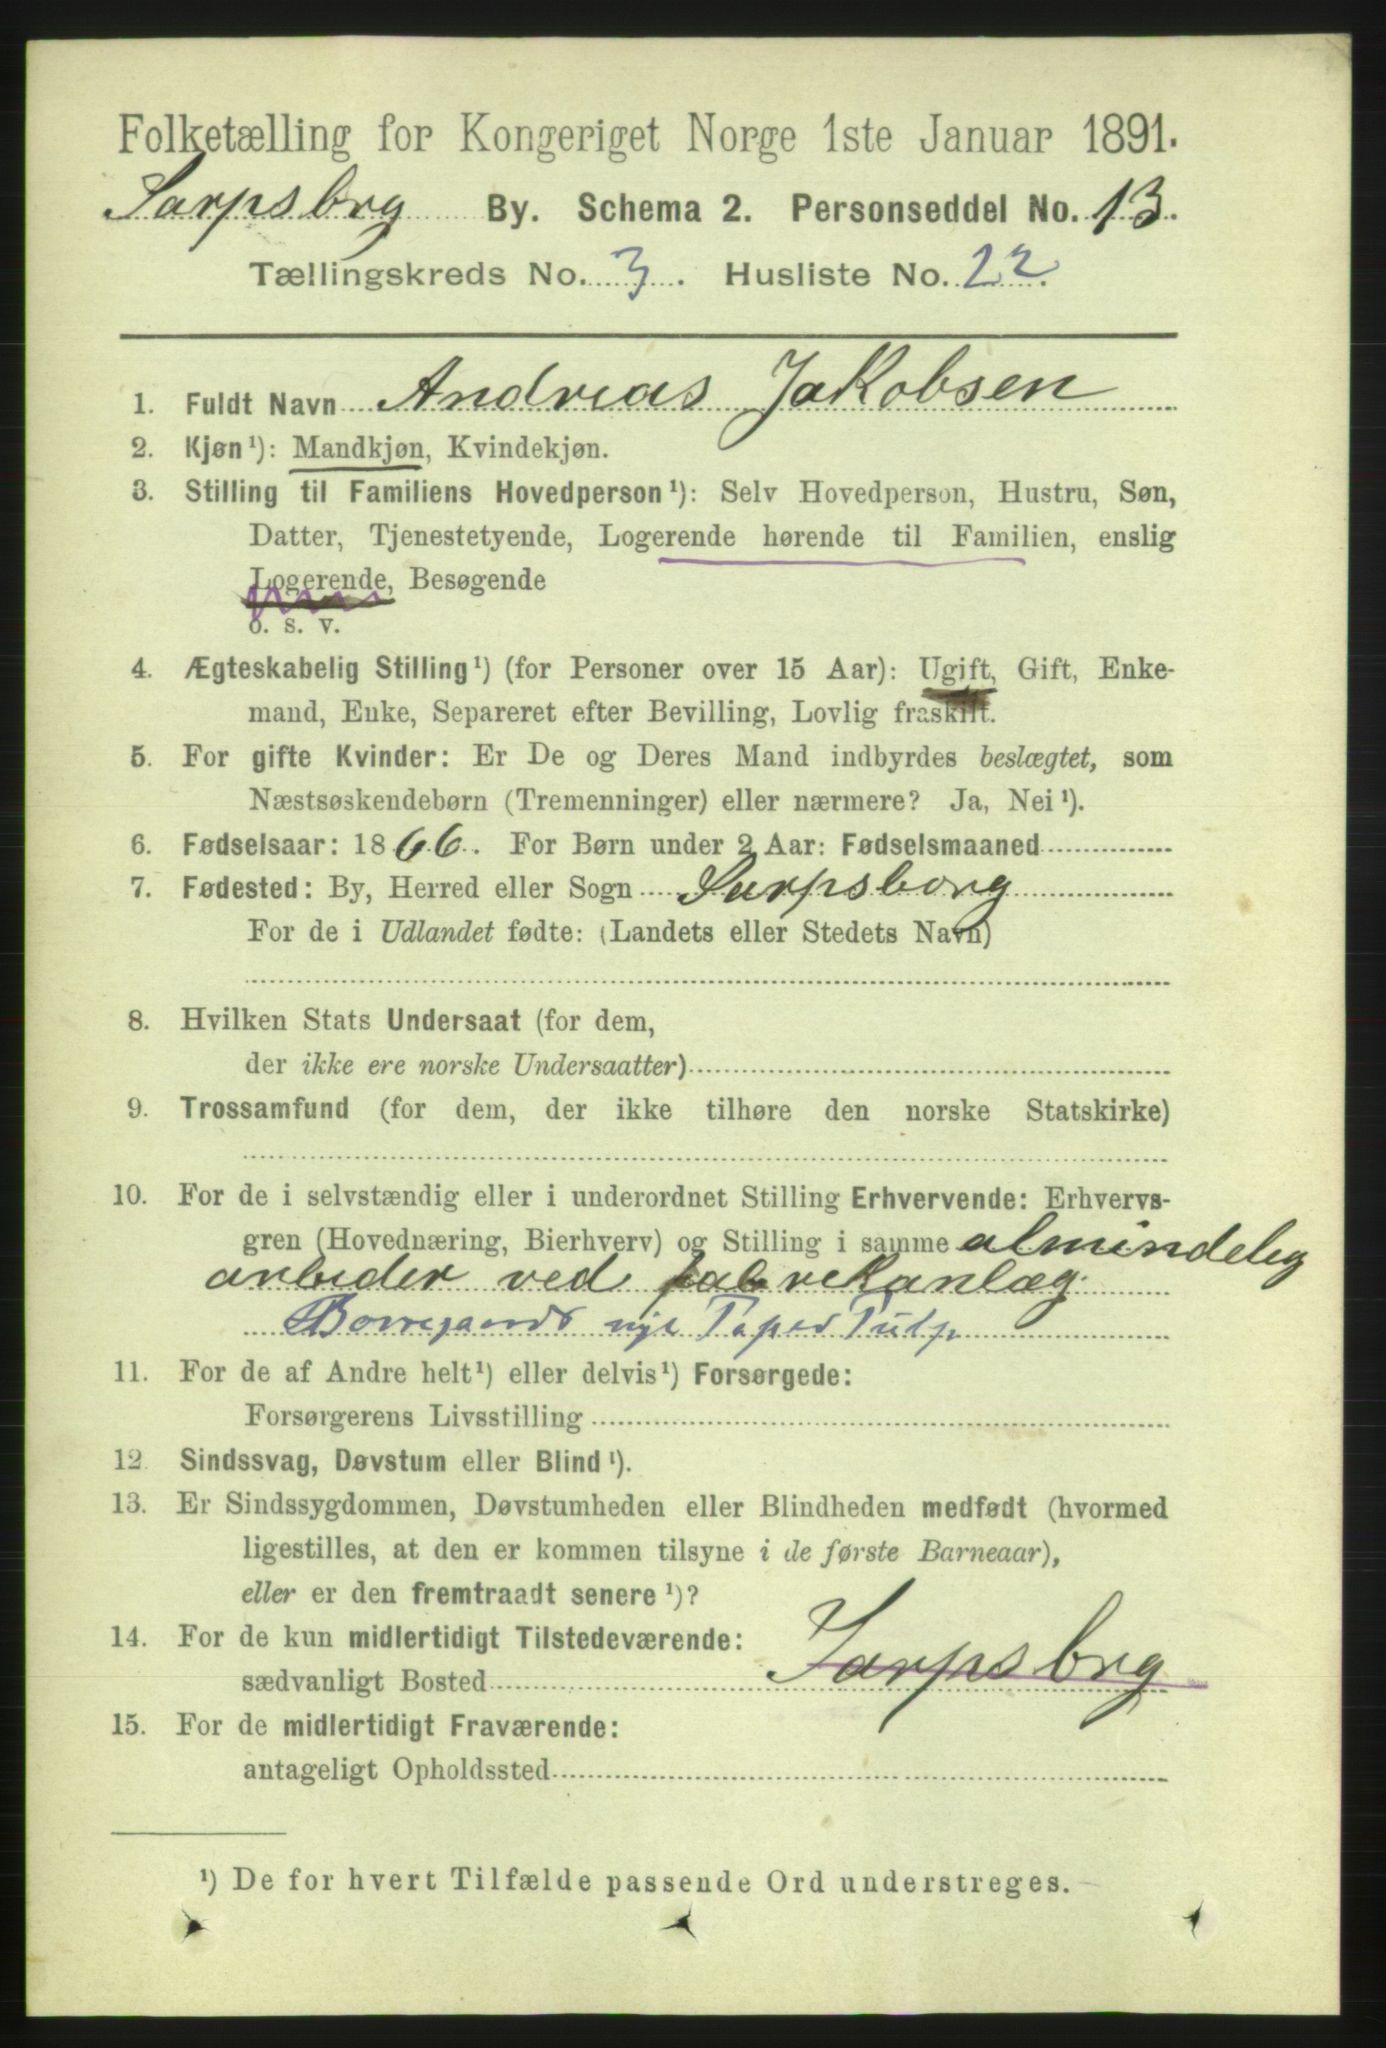 Folketælling for Kongeriget Norge 1ste Januar 1891.
Sarpsbrg By. Schema 2. Personseddel No. 13.
Tællingskreds No. 3. Husliste No. 22.
1. Fuldt Navn Andreas Jakobsen
2. Kjøn¹): Mandkjøn, Kvindekjøn.
3. Stilling til Familiens Hovedperson¹): Selv Hovedperson, Hustru, Søn,
Datter, Tjenestetyende, Logerende hørende til Familien, enslig
Logerende, Besøgende
o. s. v.
4. Ægteskabelig Stilling¹) (for Personer over 15 Aar): Ugift, Gift, Enke-
mand, Enke, Separeret efter Bevilling, Lovlig fraskilt.
5. For gifte Kvinder: Er De og Deres Mand indbyrdes beslægtet, som
Næstsøskendebørn (Tremenninger) eller nærmere? Ja, Nei¹).
6. Fødselsaar: 1866. For Børn under 2 Aar: Fødselsmaaned
7. Fødested: By, Herred eller Sogn Sarpsborg
For de i Udlandet fødte: (Landets eller Stedets Navn)
8. Hvilken Stats Undersaat (for dem,
der ikke ere norske Undersaatter)
9. Trossamfund (for dem, der ikke tilhøre den norske Statskirke)
10. For de i selvstændig eller i underordnet Stilling Erhvervende: Erhvervs-
gren (Hovednæring, Bierhverv) og Stilling i samme almindelig
arbeider ved fabrekanlæg
Borregaards nye Paper Pulp
11. For de af Andre helt¹) eller delvis¹) Forsørgede:
Forsørgerens Livsstilling
12. Sindssvag, Døvstum eller Blind¹).
13. Er Sindssygdommen, Døvstumheden eller Blindheden medfødt (hvormed
ligestilles, at den er kommen tilsyne i de første Barneaar),
eller er den fremtraadt senere¹)?
14. For de kun midlertidigt Tilstedeværende:
sædvanligt Bosted Sarpsbrg
15. For de midlertidigt Fraværende:
antageligt Opholdssted
¹) De for hvert Tilfælde passende Ord understreges.